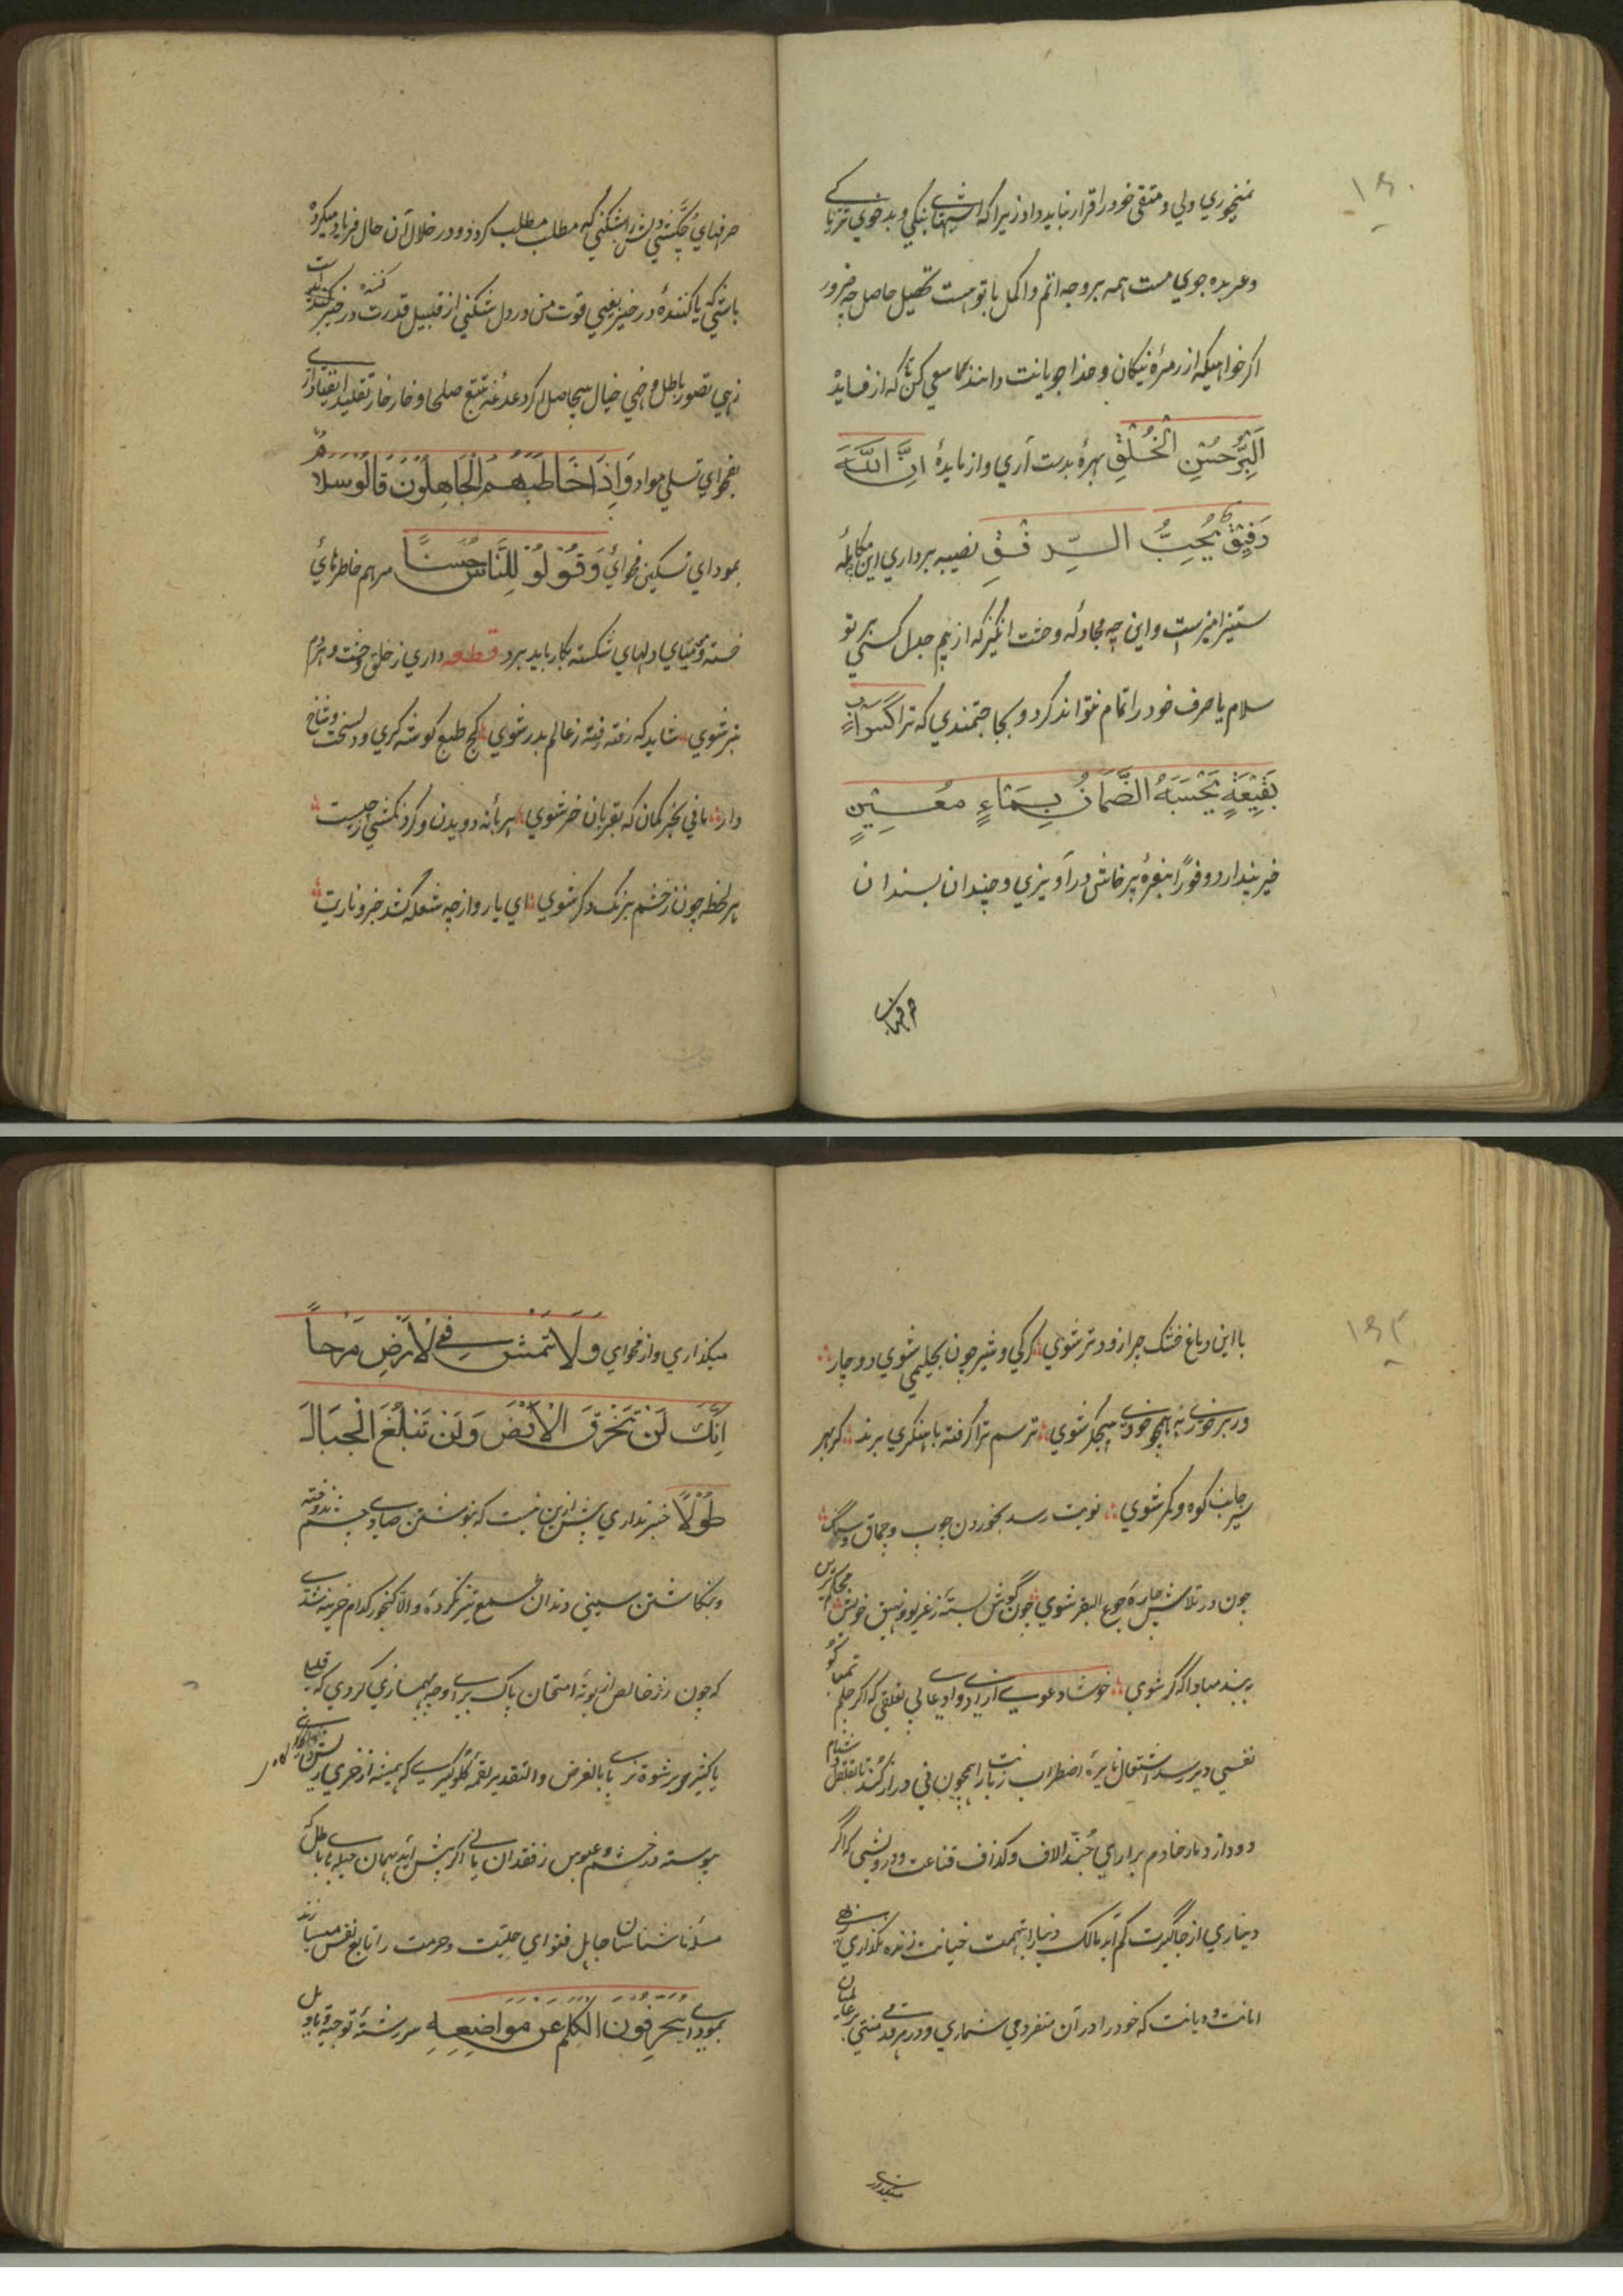 ۱۶۰
نمیخوری ولی و متقی خود را قرار نباید داد زیرا که بنگی و بدخوی
و عربده جوی مست همه بر وجه اتم و اکمل با تو هست تحصیل حاصل چه ضرور
اگر خواهیکه از زمرهٔ نیکان و خدا جویانت دانند سعی کن که از فایدهٔ
اَلبِرُّ حُسْنِ الْخُلْقِ بهرهٔ بدست آری و از مایدهٔ اِنَّ اللّٰهَ
رَفِيْقٌ يُحِبُّ الرِّفْقِ نصیبه برداری این چه مکالمه
ستیزامیزست و این چه مجادله وحشت انگیز که از بیم جدل کسی بر تو
سلام یا حرف خود را تمام نتواند کرد و بحاجتمندی که ترا كَسَرَابٍ
بِقِيْعَةٍ يَحْسَبَهُ الظَّمَانُ بِمَاءٍ مَعِيْنٍ
خیر پندارد و فوراً بنعرهٔ پرخاش درآویزی و چندان بسندان
حرفهای
حرفهای دلش را بشکنی که مطلب مطلب کرد و در خلال آن حال فریاد میکرده
باشی که یا کنندهٔ در خیبر یعنی قوت من در دل شکنی از قبیل قدرت کننده در خیبرست
زهی تصور باطل و زهی خیال بیحاصل اگر دغدغهٔ تتبع صلحا و خار خار تقلید اتقیا داری
بفحوای تسلی مواد وَاِذَا خَاطَبَهُمُ الْجَاهِلُوْنَ قَالُوْ سَلَامٌ
بمودای تسکین فحوای وَقُوْلُوْ لِلنَّاسِ حُسَنًا مرهم خاطرهای
خسته و مومیای دلهای شکسته بکار باید برد قطعه داری ز خلق وحشت و هر دم
بتر شوی شاید که رفته رفته ز عالم بدر شوی کج طبع گوشه گیری و دلسخت و شاخ
دار مانی بخر کمان که بقربان خر شوی هر با نه دویدن و گردنکشی ز چیست
هر لحظه چون ز خشم برنگ دگر شوی ای یار و از چه شعله کشد خبر و نارت
۱۶۲
با این دماغ خشک چرا زود تر شوی گرگی و شیر چون بحلیمی شوی دوچار
در بر خوری به همچو خودی بیجگر شوی ترسم ترا گرفته باهنگری برند گر بهر
سیر جانب کوه و کمر شوی نوبت رسد بخوردن چوب و چماق و سنگ
چون در تلاش چارهٔ جوع البقر شوی چون گوش بسته ز عربو نهیق خویش
بند مبادا که کر شوی خوشا دعوی آزادی و ادعای بی تعلقی که اگر چلم
نفسی دیر رسد اشتعال نایرهٔ اضطراب زبانت را همچون نی دراز کند
دود از دمار خادم براری حُبّذا لاف و گذاف قناعت و درویشی که اگر
دیناری از جاگیرت کم آید مالک دینار را بتهمت خیانت زنده نگذاری زهی
امانت و دیانت که خود را در آن متفرد می شماری و در هر قدمی منتی بر عالمیان
میگذاری
میگذاری و از فحوای وَلَا تَمْشِ فِي الْاَرْضِ مَرْحاً
اِنَّكَ لَنْ تَخْرِقَ الْاَرْضَ وَلَنْ تَبْلُغَ الْجِبَالَ
طُوْلًا خبر نداری بیش ازین نیست که بنوشتن صادی چشم ندوخته
و بنگاشتن سینی دندان طمع تیز نکرده و الا گنجور کدام خزینه شدی
که چون زر خالص از بوتهٔ امتحان پاک برآمدی و چه مهمسازی کردی که قلیل
یا کثیری بر شوة نربا بالفرض و التقدیر لقمهٔ گلوگیری که همیشه از خری
پیوسته در خشم و عبوس ز فقدان یانی اگر پیش آید بهمان حیلهٔ باطل که
مسئله ناشناسان جاهل فتوای حلیت و حرمت را تابع نفس میسازند
بمودای يُحَرِّفُوْنَ الْكَلِمَ عَنْ مَوَاضِعِهِ سررشتهٔ توجیه و تاویل